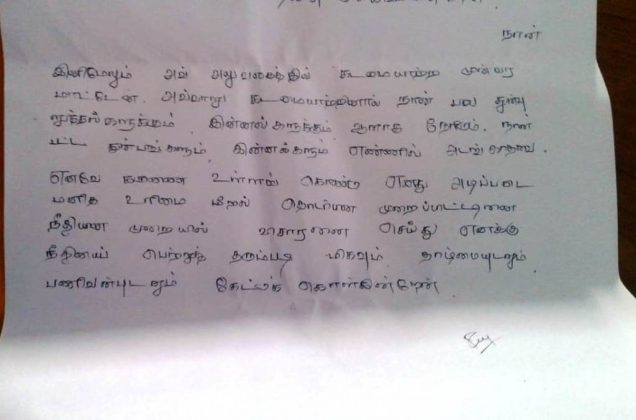 நான்
இனிமேலும் அவ் அலுவலகத்தில் கடமையாற்ற முன்வர
மாட்டேன். அவ்வாறு கடமையாற்றினால் நான் பல துன்பு
றுத்தல்களுக்கும் இன்னல்களுக்கும் ஆளாக நேரும். நான்
பட்ட துன்பங்களும், இன்னல்களும் எண்ணில் அடங்காதவை.
எனவே கவனை உள்ளால் கொண்டு எனது அடிப்படை
மனித உரிமை மீறல் தொடர்பான முறைப்பாட்டினை
நீதியான முறையில் விசாரணை செய்து எனக்கு
நீதியைப் பெற்றுத் தரும்படி மிகவும் தாழ்மையுடனும்
பணிவன்புடனும் கேட்டுக் கொள்கின்றேன்